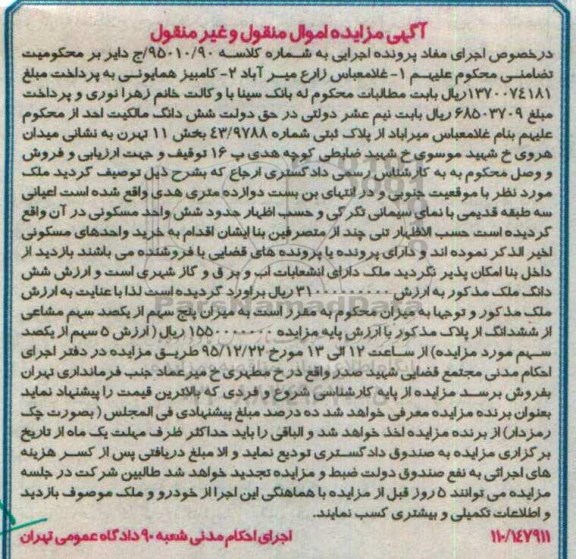 آگهی مزایده اموال منقول و غیر منقول
درخصوص اجرای مفاد پرونده اجرایی به شماره کلاسه ۹۵۰۱۰/۹۰/ج دایر بر محکومیت
تضامنی محکوم علیهم ۱- غلامعباس زارع میر آباد ۲- کامبیز همایونی به پرداخت مبلغ
۱۳۷۰۰۷۴۱۸۱ریال بابت مطالبات محکوم له بانک سینا با وکالت خانم زهرا نوری و پرداخت
مبلغ ۶۸۵۰۳۷۰۹ ریال بابت نیم عشر دولتی در حق دولت شش دانگ مالکیت احد از محکوم
علیهم بنام غلامعباس میراباد از پلاک ثبتی شماره ۴۳/۹۷۸۸ بخش ۱۱ تهرن به نشانی میدان
هروی خ شهید موسوی خ شهید ضابطی کوچه هدی پ ۱۶ توقیف و جهت ارزیابی و فروش
و وصل محکوم به به کارشناس رسمی دادگستری ارجاع که بشرح ذیل توصیف گردید ملک
مورد نظر با موقعیت جنوبی و در انتهای بن بست دوازده متری هدی واقع شده است اعیانی
سه طبقه قدیمی با نمای سیمانی تگرگی و حسب اظهار حدود شش واحد مسکونی در آن واقع
گردیده است حسب الاظهار تنی چند از متصرفین بنا ایشان اقدام به خرید واحدهای مسکونی
اخیر الذکر نموده اند و دارای پرونده یا پرونده های قضایی با فروشنده می باشند بازدید از
داخل بنا امکان پذیر نگردید ملک دارای انشعابات آب و برق و گاز شهری است و ارزش شش
دانگ ملک مذکور به ارزش ۳۱۰۰۰۰۰۰۰۰۰ ریال براورد گردیده است لذا با عنایت به ارزش
ملک مذکور و توجها به میزان محکوم به مقرر است به میزان پنج سهم از یکصد سهم مشاعی
از ششدانگ از پلاک مذکور با ارزش پایه مزایده ۱۵۵۰۰۰۰۰۰۰ ریال ( ارزش ۵ سهم از یکصد
سهم مورد مزایده) از ساعت ۱۲ الی ۱۳ مورخ ۹۵/۱۲/۲۲ طریق مزایده در دفتر اجرای
احکام مدنی مجتمع قضایی شهید صدر واقع در خ مطهری خ میرعماد جنب فرمانداری تهران
بفروش برسد مزایده از پایه کارشناسی شروع و فردی که بالاترین قیمت را پیشنهاد نماید
بعنوان برنده مزایده معرفی خواهد شد ده درصد مبلغ پیشنهادی فی المجلس ( بصورت چک
رمزدار) از برنده مزایده اخذ خواهد شد و الباقی را باید حداکثر ظرف مهلت یک ماه از تاریخ
برگزاری مزایده به صندوق دادگستری تودیع نماید و الا مبلغ دریافتی پس از کسر هزینه
های اجرائی به نفع صندوق دولت ضبط و مزایده تجدید خواهد شد طالبین شرکت در جلسه
مزایده می توانند ۵ روز قبل از مزایده با هماهنگی این اجرا از خودرو و ملک موصوف بازدید
و اطلاعات تکمیلی و بیشتری کسب نمایند.
۱۱۰/۱۴۷۹۱۱ اجرای احکام مدنی شعبه ۹۰ دادگاه عمومی تهران
ParsNamadData